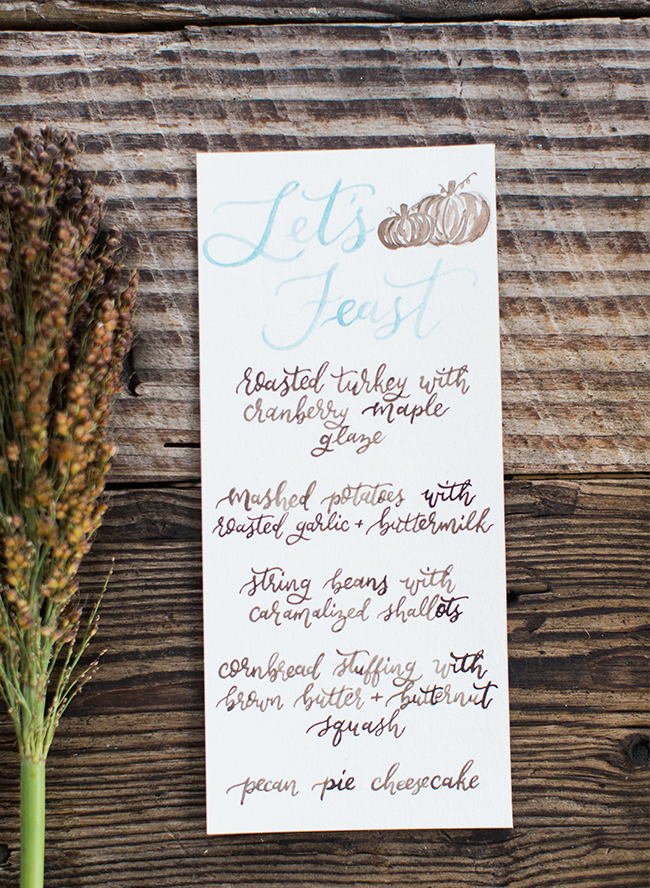 Let's
Feast
roasted turkey with
cranberry maple
glaze
mashed potatoes with
roasted garlic + buttermilk
string beans with
caramalized shallots
cornbread stuffing with
brown butter + butternut
squash
pecan pie cheesecake